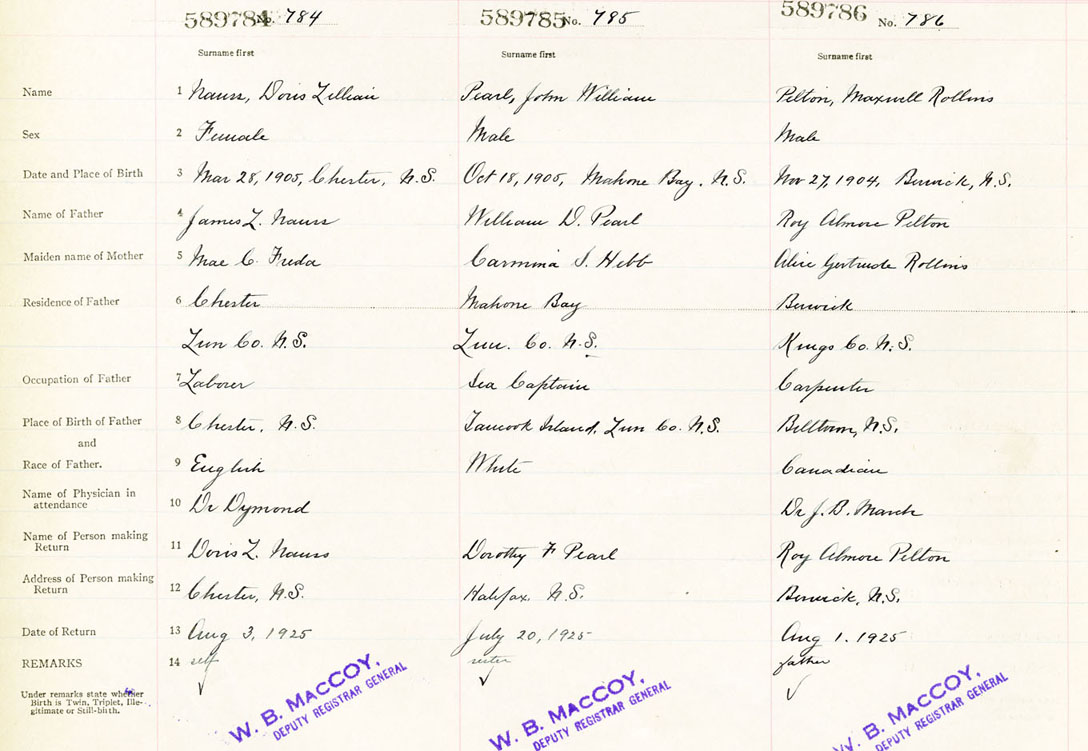 589784 No. 784 589785 No. 785 589786 No. 786
Surname first Surname first Surname first
Name 1 Nauss, Doris Lillian Pearl, John William Pelton, Maxwell Rollins
Sex 2 Female Male Male
Date and Place of Birth 3 Mar 28, 1905, Chester, N.S. Oct 18, 1905, Mahone Bay, N.S. Nov 27, 1904, Berwick, N.S.
Name of Father 4 James L. Nauss William D. Pearl Roy Almore Pelton
Maiden name of Mother 5 Mae C. Freda Carmina S. Hebb Alice Gertrude Rollins
Residence of Father 6 Chester Mahone Bay Berwick
Lun Co. N.S. Lun. Co. N.S. Kings Co. N.S.
Occupation of Father 7 Laborer Sea Captain Carpenter
Place of Birth of Father 8 Chester, N.S. Tancook Island, Lun Co. N.S. Billtown, N.S.
and
Race of Father. 9 English White Canadian
Name of Physician in
attendance 10 Dr Dymond Dr J. B. March
Name of Person making
Return 11 Doris L. Nauss Dorothy F Pearl Roy Almore Pelton
Address of Person making
Return 12 Chester, N.S. Halifax, N.S. Berwick, N.S.
Date of Return 13 Aug 3, 1925 July 20, 1925 Aug 1. 1925
REMARKS 14 self sister father
Under remarks state whether
Birth is Twin, Triplet, Ille-
gitimate or Still-birth.
W. B. MACCOY, W. B. MACCOY, W. B. MACCOY,
DEPUTY REGISTRAR GENERAL DEPUTY REGISTRAR GENERAL DEPUTY REGISTRAR GENERAL